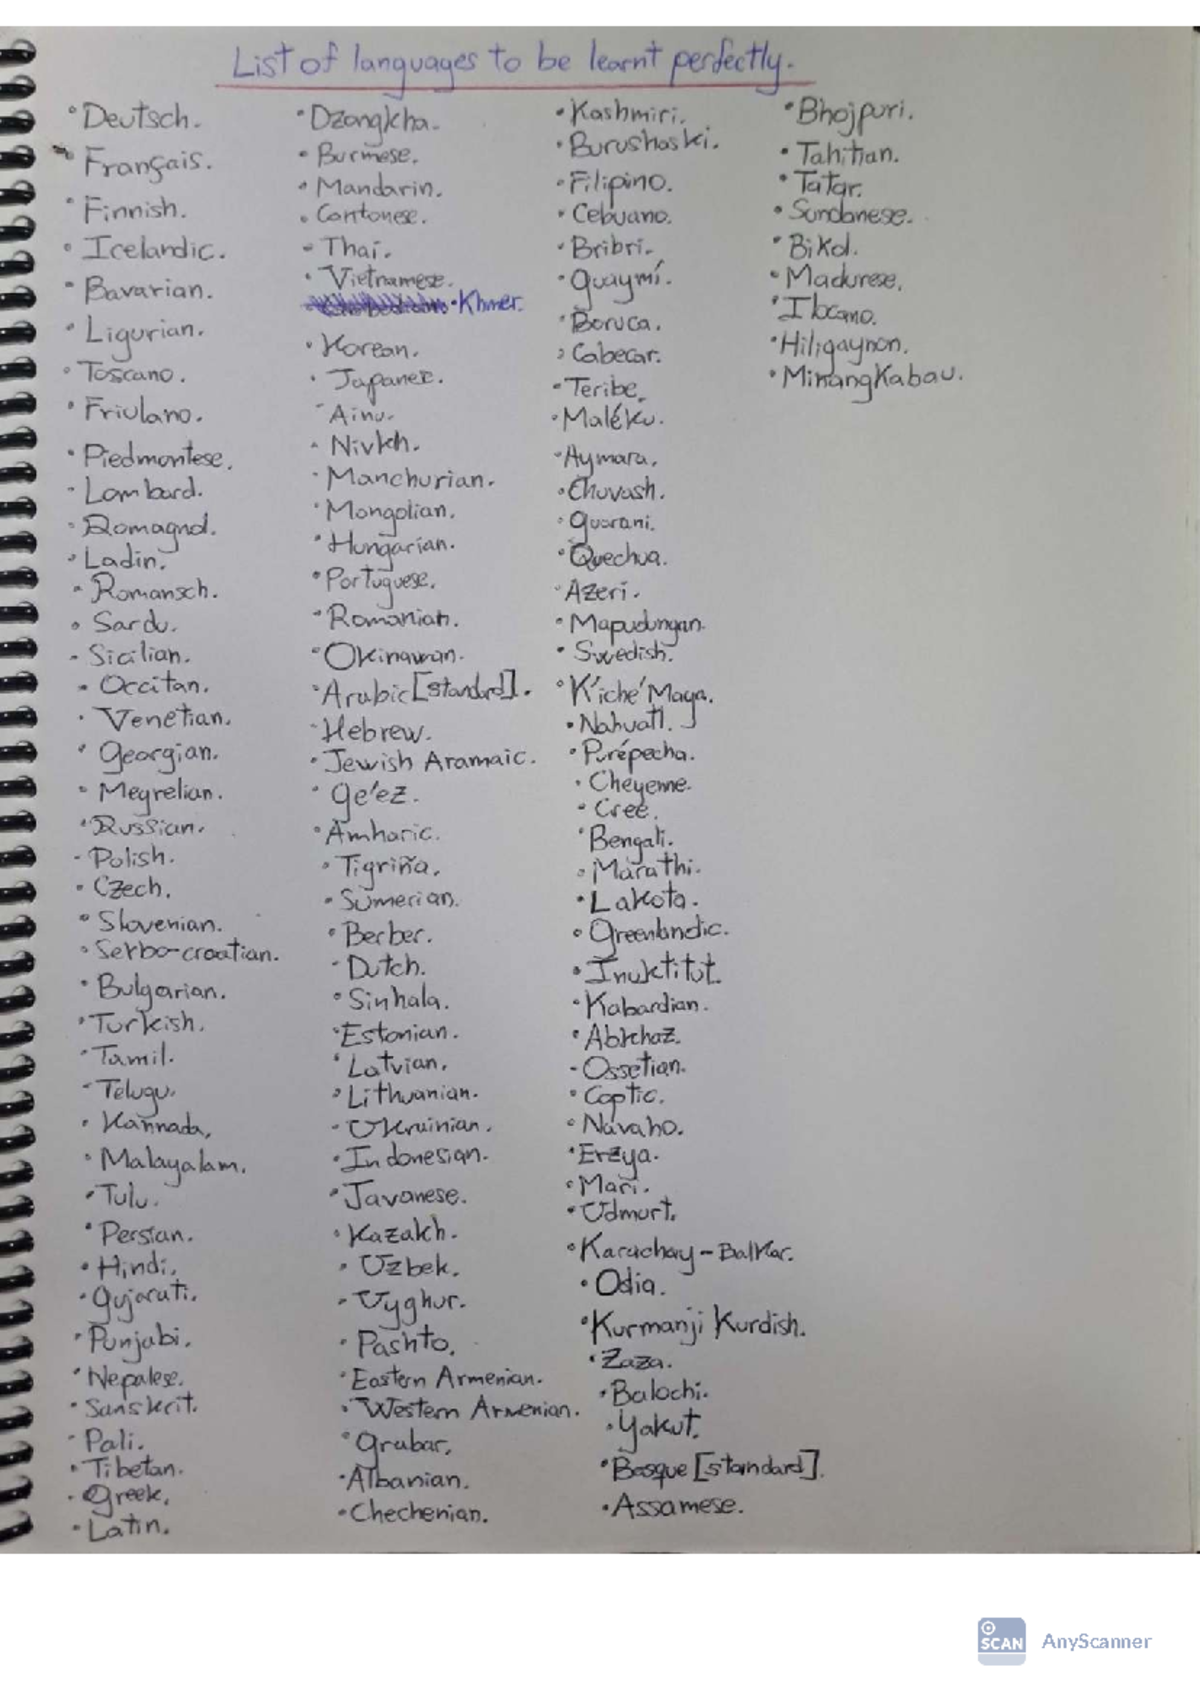 List of languages to be learnt perfectly.
• Deutsch.
• Français.
• Finnish.
• Icelandic.
• Bavarian.
• Ligurian.
• Toscano.
• Friulano.
• Piedmontese.
• Lombard.
• Romagnol.
• Ladin.
• Romansch.
• Sardu.
• Sicilian.
• Occitan.
• Venetian.
• Georgian.
• Megrelian.
• Russian.
• Polish.
• Czech.
• Slovenian.
• Serbo-croatian.
• Bulgarian.
• Turkish.
• Tamil.
• Telugu.
• Kannada.
• Malayalam.
• Tulu.
• Persian.
• Hindi.
• Gujarati.
• Punjabi.
• Nepalese.
• Sanskrit.
• Pali.
• Tibetan.
• Greek.
• Latin.
• Dzongkha.
• Burmese.
• Mandarin.
• Cantonese.
• Thai.
• Vietnamese.
• Khmer.
• Korean.
• Japanese.
• Ainu.
• Nivkh.
• Manchurian.
• Mongolian.
• Hungarian.
• Portuguese.
• Romanian.
• Okinawan.
• Arabic [standard].
• Hebrew.
• Jewish Aramaic.
• Ge'ez.
• Amharic.
• Tigriña.
• Sumerian.
• Berber.
• Dutch.
• Sinhala.
• Estonian.
• Latvian.
• Lithuanian.
• Ukruinian.
• Indonesian.
• Javanese.
• Kazakh.
• Uzbek.
• Uyghur.
• Pashto.
• Eastern Armenian.
• Western Armenian.
• Grabar.
• Albanian.
• Chechenian.
• Kashmiri.
• Burushaski.
• Filipino.
• Cebuano.
• Bribri.
• Guaymí.
• Boruca.
• Cabecar.
• Teribe.
• Maléku.
• Aymara.
• Chuvash.
• Guarani.
• Quechua.
• Azeri.
• Mapudungan.
• Swedish.
• K'iche' Maya.
• Nahuatl.
• Purépecha.
• Cheyenne.
• Cree.
• Bengali.
• Marathi.
• Lakota.
• Greenlandic.
• Inuktitut.
• Kabardian.
• Abkhaz.
• Ossetian.
• Coptic.
• Navaho.
• Erzya.
• Mari.
• Udmurt.
• Karachay-Balkar.
• Odia.
• Kurmanji Kurdish.
• Zaza.
• Balochi.
• Yakut.
• Basque [standard].
• Assamese.
• Bhojpuri.
• Tahitian.
• Tatar.
• Sundanese.
• Bikol.
• Madurese.
• Ilocano.
• Hiligaynon.
• Minangkabau.
SCAN AnyScanner